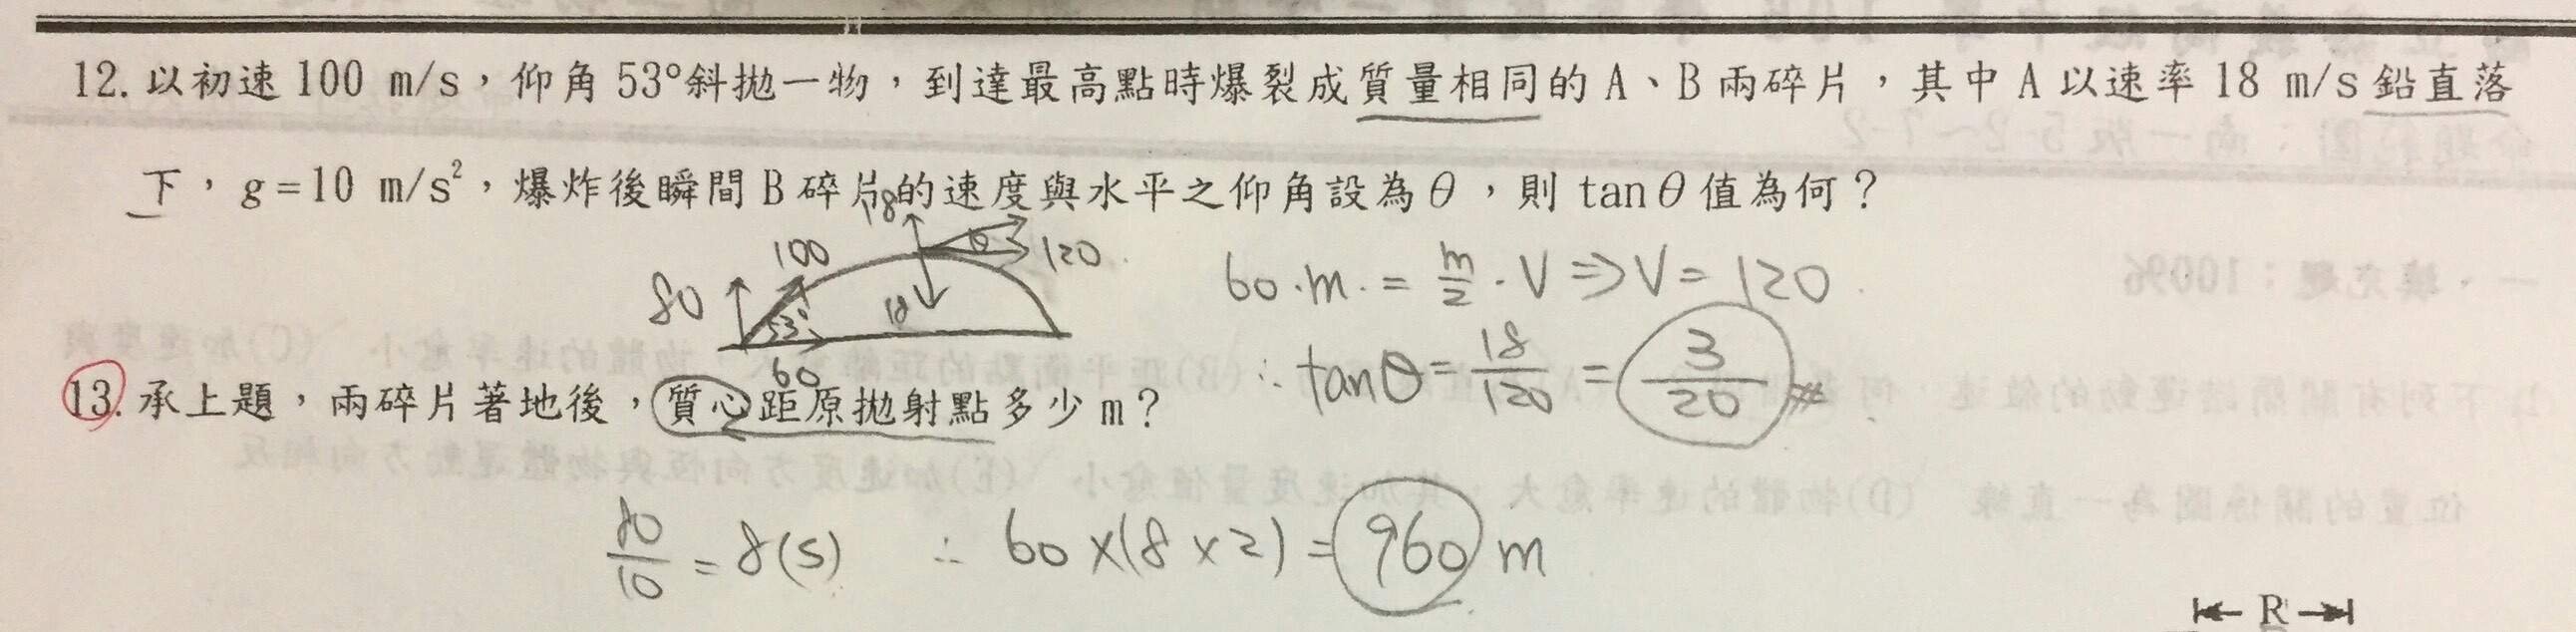 12. 以初速 100 m/s，仰角 53°斜拋一物，到達最高點時爆裂成質量相同的 A、B 兩碎片，其中 A 以速率 18 m/s 鉛直落
下，g=10 m/s²，爆炸後瞬間 B 碎片的速度與水平之仰角設為θ，則 tanθ值為何？
18
100
θ
120
80
18
53°
60
60·m·= m/2 ·V ⇒ V = 120
∴ tanθ = 18/120 = 3/20
13. 承上題，兩碎片著地後，質心距原拋射點多少 m？
80/10 = 8(s) ∴ 60×(8×2) = 960 m
一、填充題：100%
R